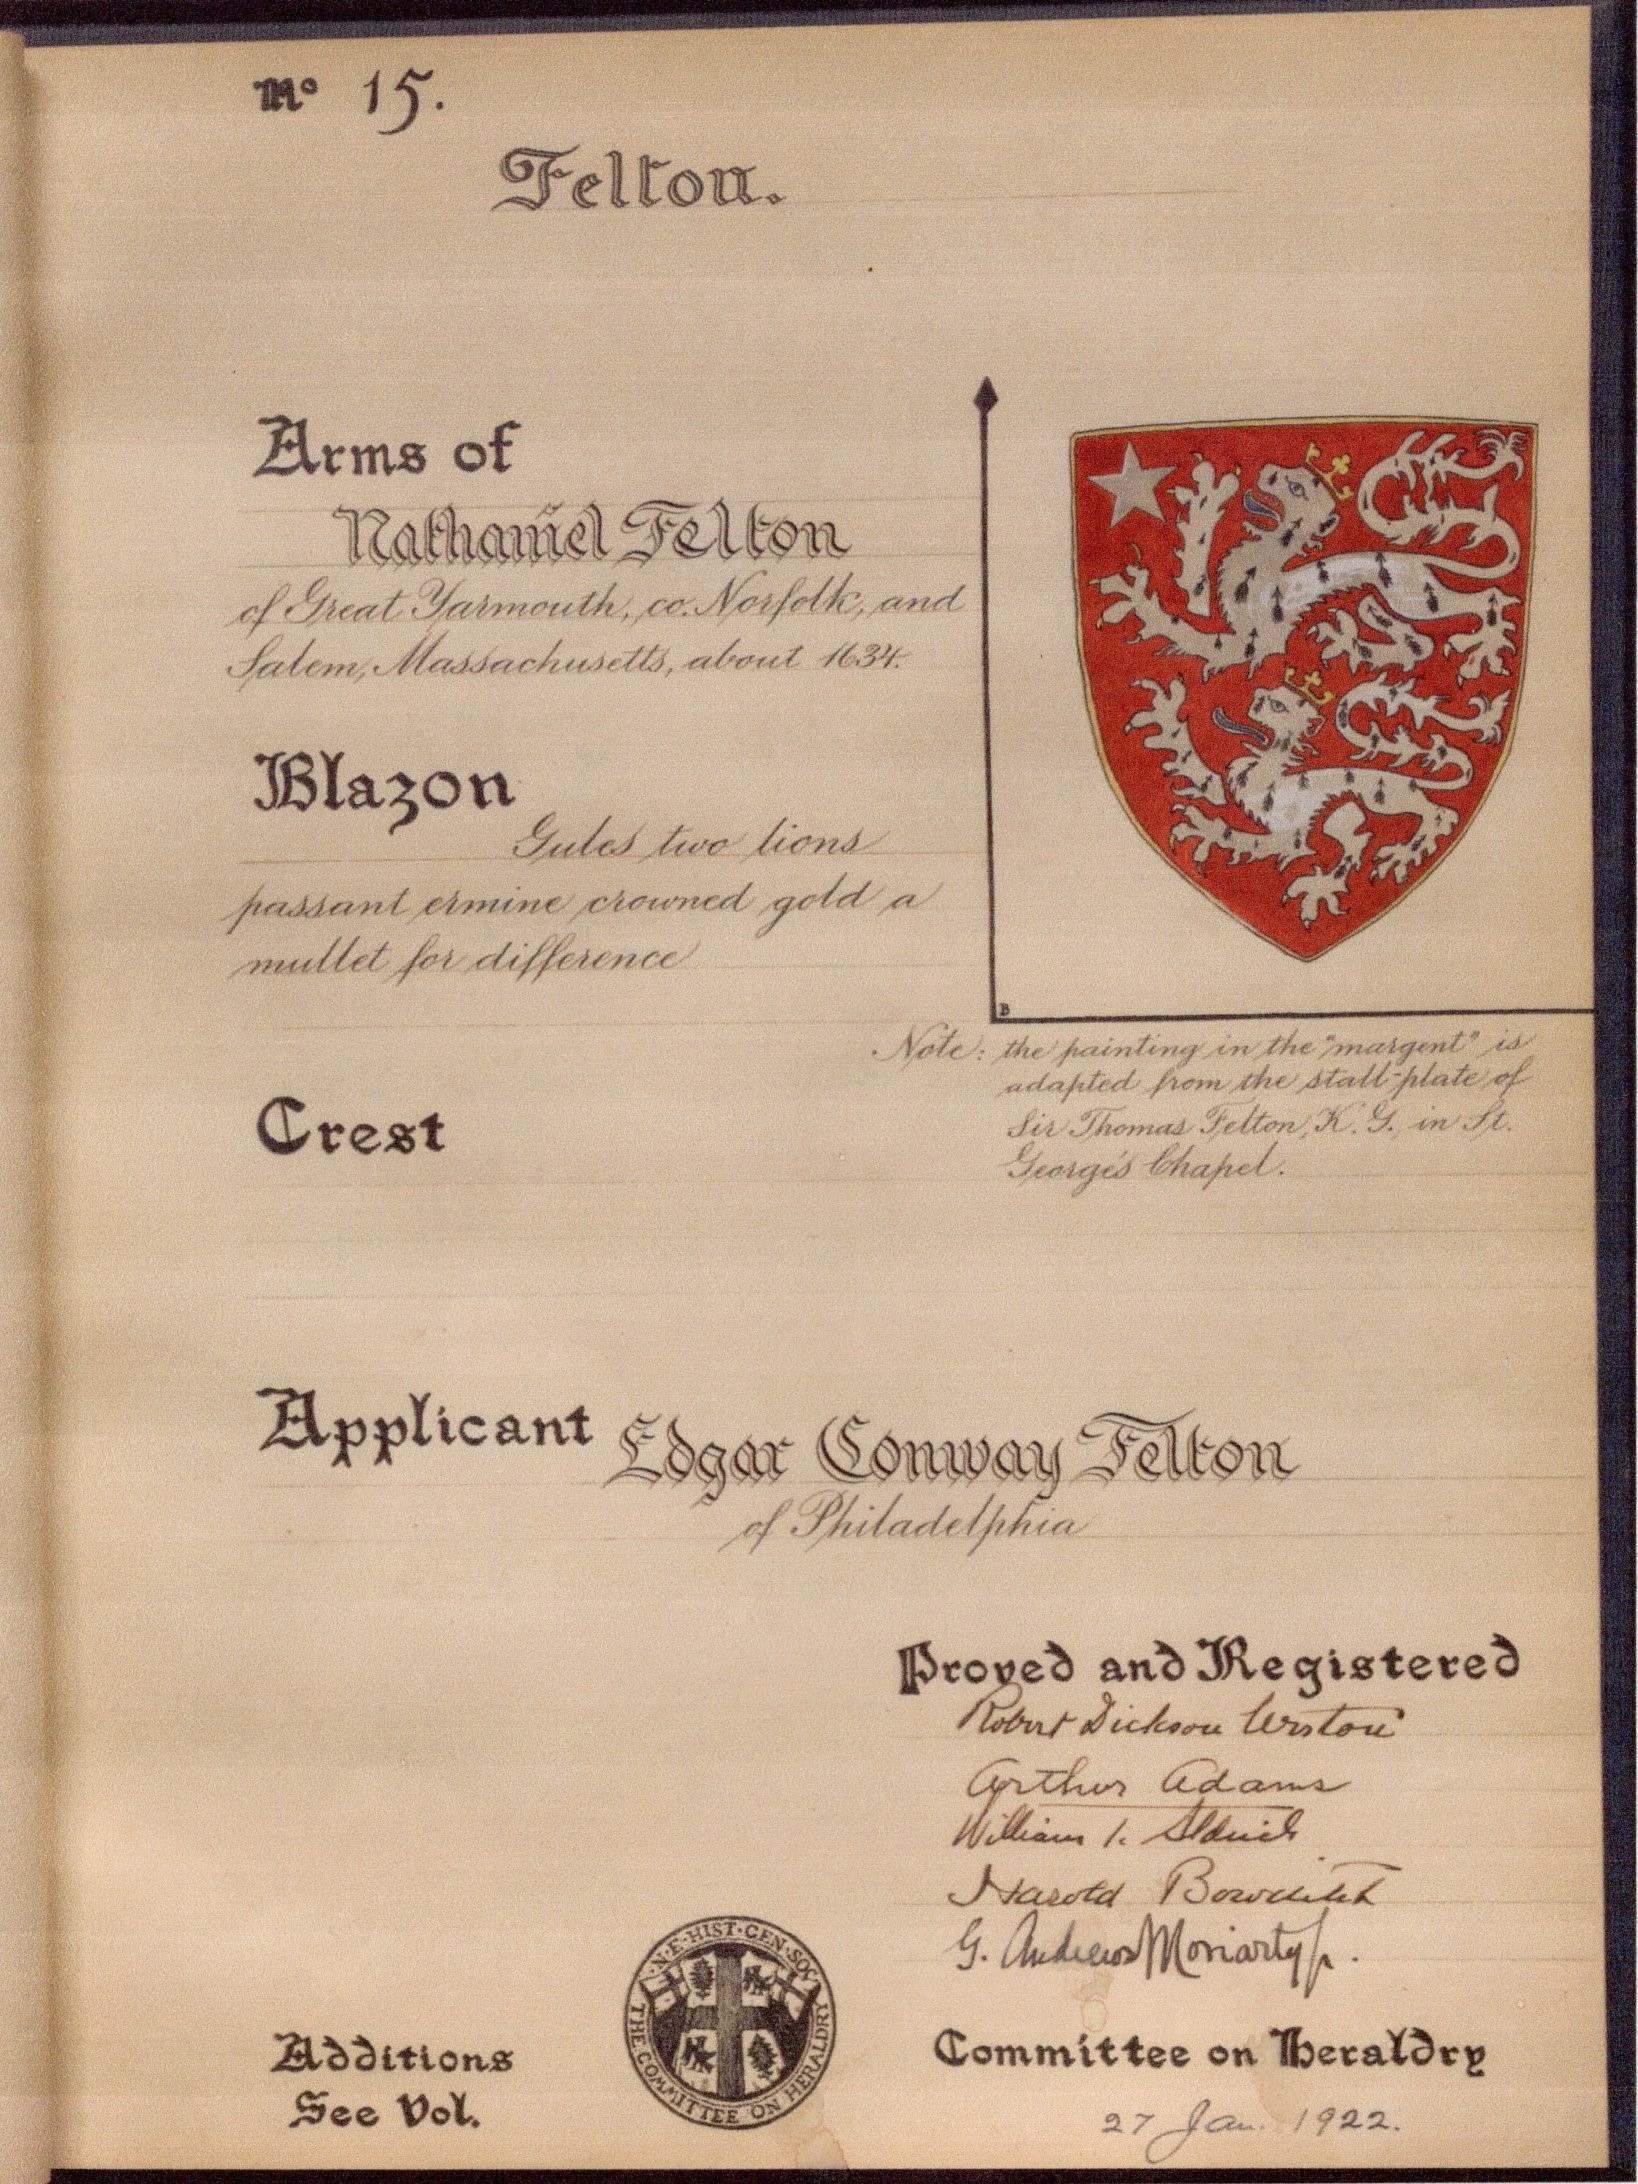 No 15.
Felton.
Arms of
Nathaniel Felton
of Great Yarmouth, co. Norfolk, and
Salem, Massachusetts, about 1634.
Blazon
Gules two lions
passant ermine crowned gold a
mullet for difference
B
Note: the painting in the "margent" is
adapted from the stall-plate of
Sir Thomas Felton, K. G., in St.
George's Chapel.
Crest
Applicant Edgar Conway Felton
of Philadelphia
Proved and Registered
Robert Dickson Weston
Arthur Adams
William T. Aldrich
Harold Bowditch
G. Andrews Moriarty Jr.
N·E·HIST·GEN·SOC
THE COMMITTEE ON HERALDRY
Committee on Heraldry
27 Jan. 1922.
Additions
See Vol.